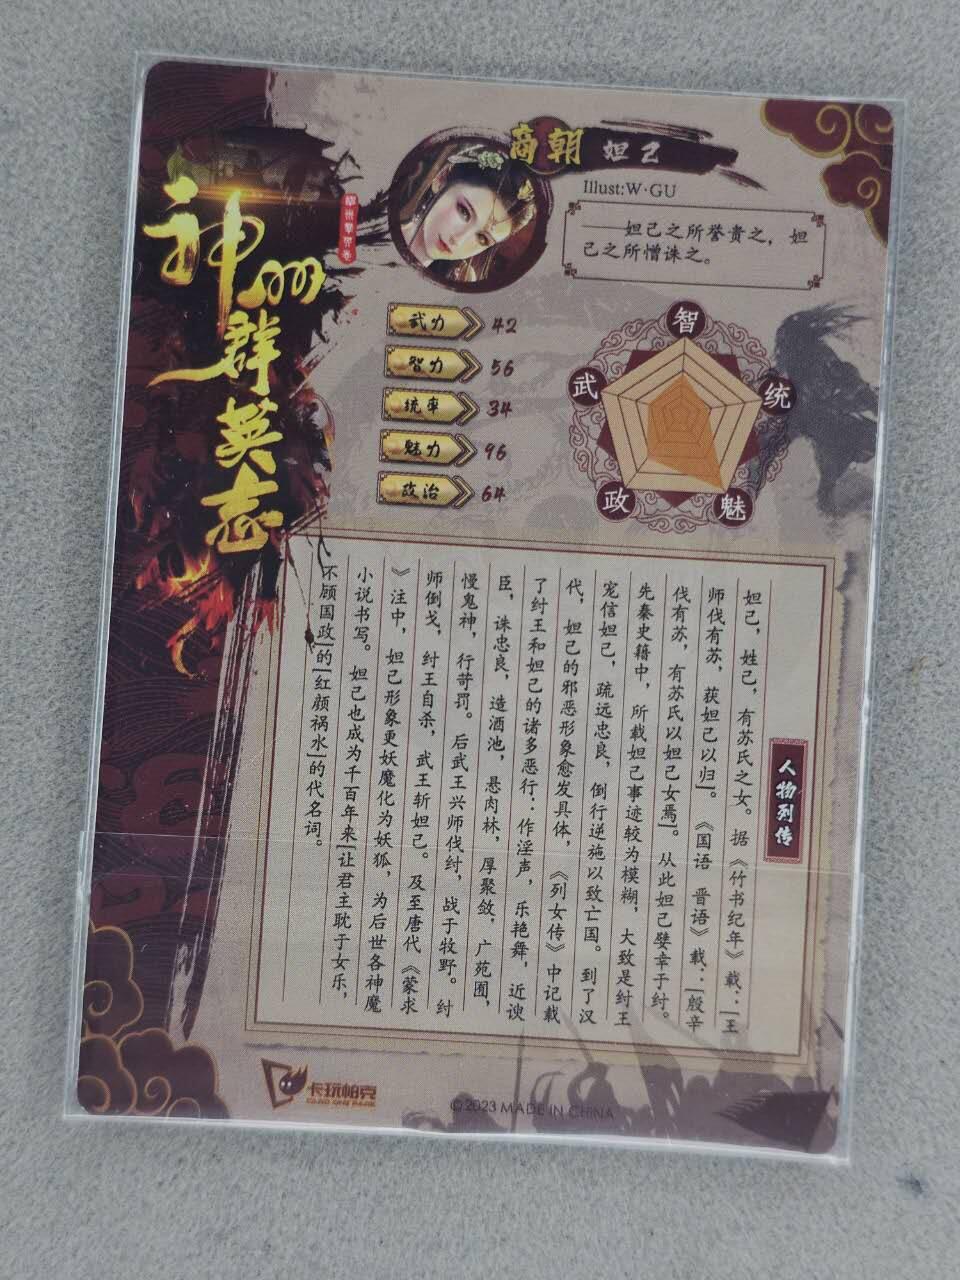 神州
群
英
志
商朝 妲己
Illust:W·GU
——妲己之所誉贵之，妲
己之所憎诛之。
武力 42
智力 56
统率 34
魅力 96
政治 64
智
武
统
政
魅
人物列传
妲己，姓己，有苏氏之女。据《竹书纪年》载：|王
师伐有苏，获妲己以归|。《国语 晋语》载：|殷辛
伐有苏，有苏氏以妲己女焉|。从此妲己嬖幸于纣。
先秦史籍中，所载妲己事迹较为模糊，大致是纣王
宠信妲己，疏远忠良，倒行逆施以致亡国。到了汉
代，妲己的邪恶形象愈发具体，《列女传》中记载
了纣王和妲己的诸多恶行：作淫声，乐艳舞，近谀
臣，诛忠良，造酒池，悬肉林，厚聚敛，广苑囿，
慢鬼神，行苛罚。后武王兴师伐纣，战于牧野。纣
师倒戈，纣王自杀，武王斩妲己。及至唐代《蒙求
》注中，妲己形象更妖魔化为妖狐，为后世各神魔
小说书写。妲己也成为千百年来|让君主耽于女乐，
不顾国政|的|红颜祸水|的代名词。
卡玩帕克
©2023 MADE IN CHINA